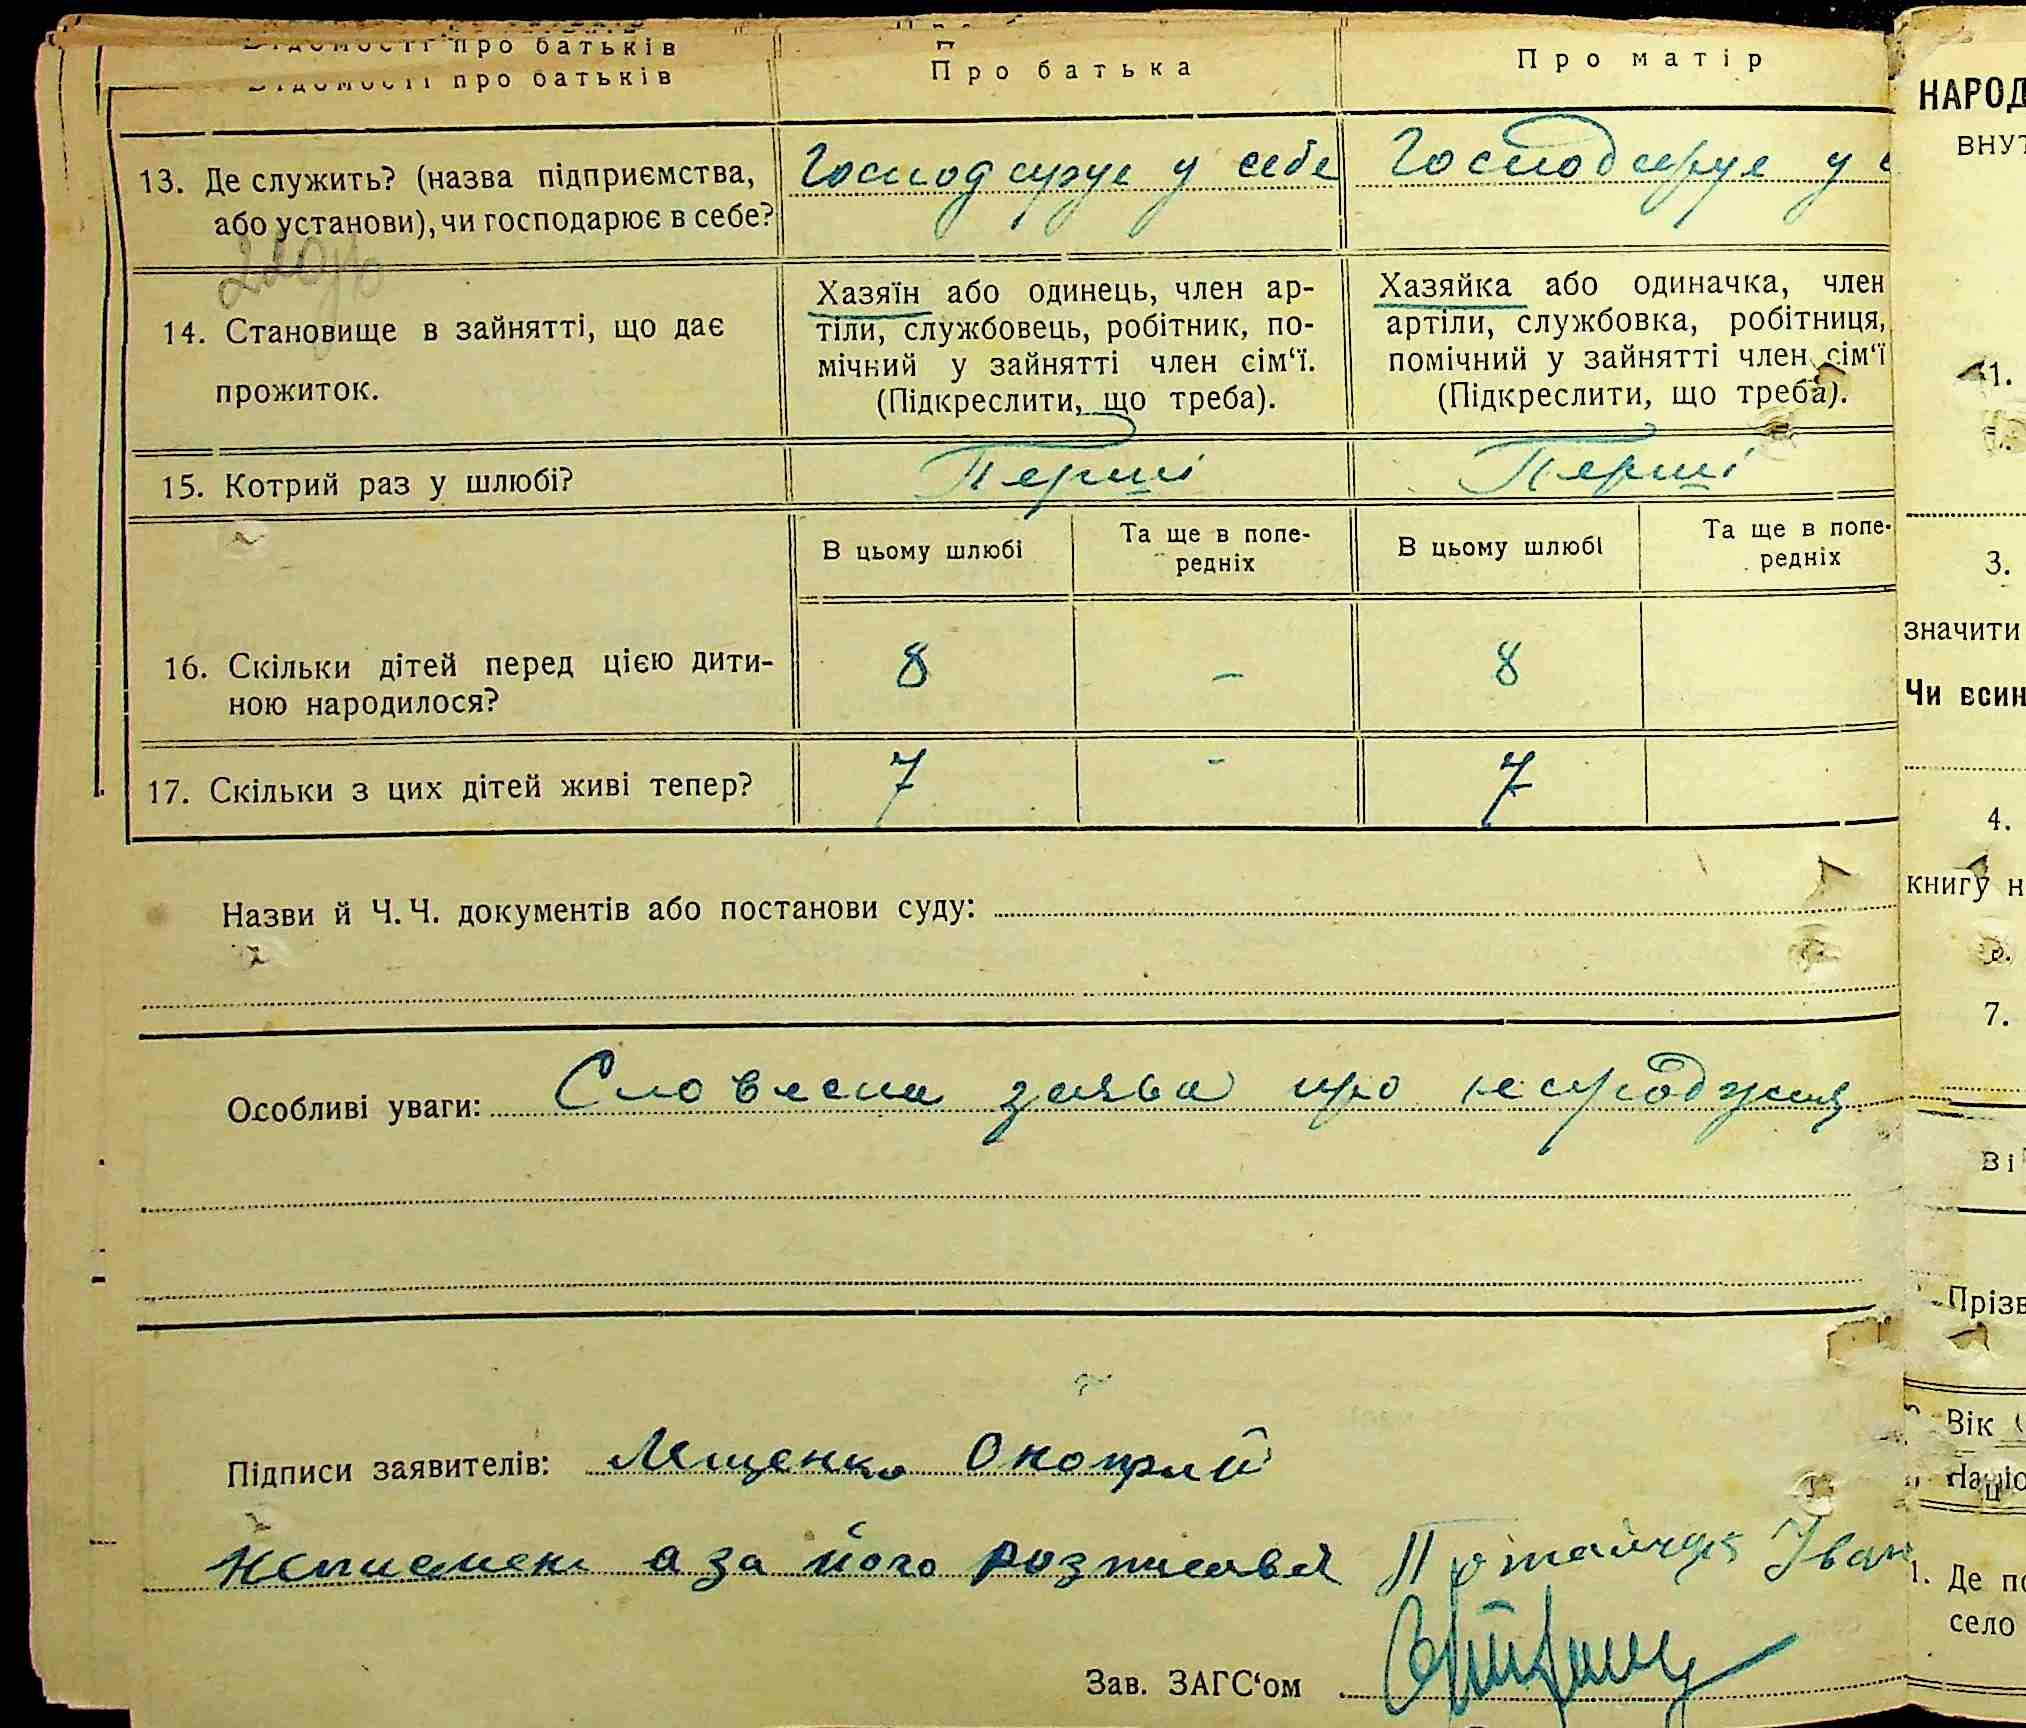 Відомості про батьків
Відомості про батьків
Про батька
Про матір
13. Де служить? (назва підприємства,
або установи), чи господарює в себе?
Господарує у себе
Господарує у
14. Становище в зайнятті, що дає
прожиток.
Хазяїн або одинець, член ар-
тіли, службовець, робітник, по-
мічний у зайнятті член сім‘ї.
(Підкреслити, що треба).
Хазяйка або одиначка, член
артіли, службовка, робітниця,
помічний у зайнятті член сім‘ї
(Підкреслити, що треба).
15. Котрий раз у шлюбі?
Перші
Перші
В цьому шлюбі
Та ще в попе-
редніх
В цьому шлюбі
Та ще в попе-
редніх
16. Скільки дітей перед цією дити-
ною народилося?
8
-
8
17. Скільки з цих дітей живі тепер?
7
-
7
Назви й Ч.Ч. документів або постанови суду:
Особливі уваги: Словесна заява про народження
Підписи заявителів: Лященко Оноприй
неписмен а за його розписавсі Іван
Зав. ЗАГС‘ом
НАРОД
ВНУТ
1.
3.
значити
Чи всин
4.
книгу н
7.
Ві
Прізв
Вік
Націо
1. Де по
село